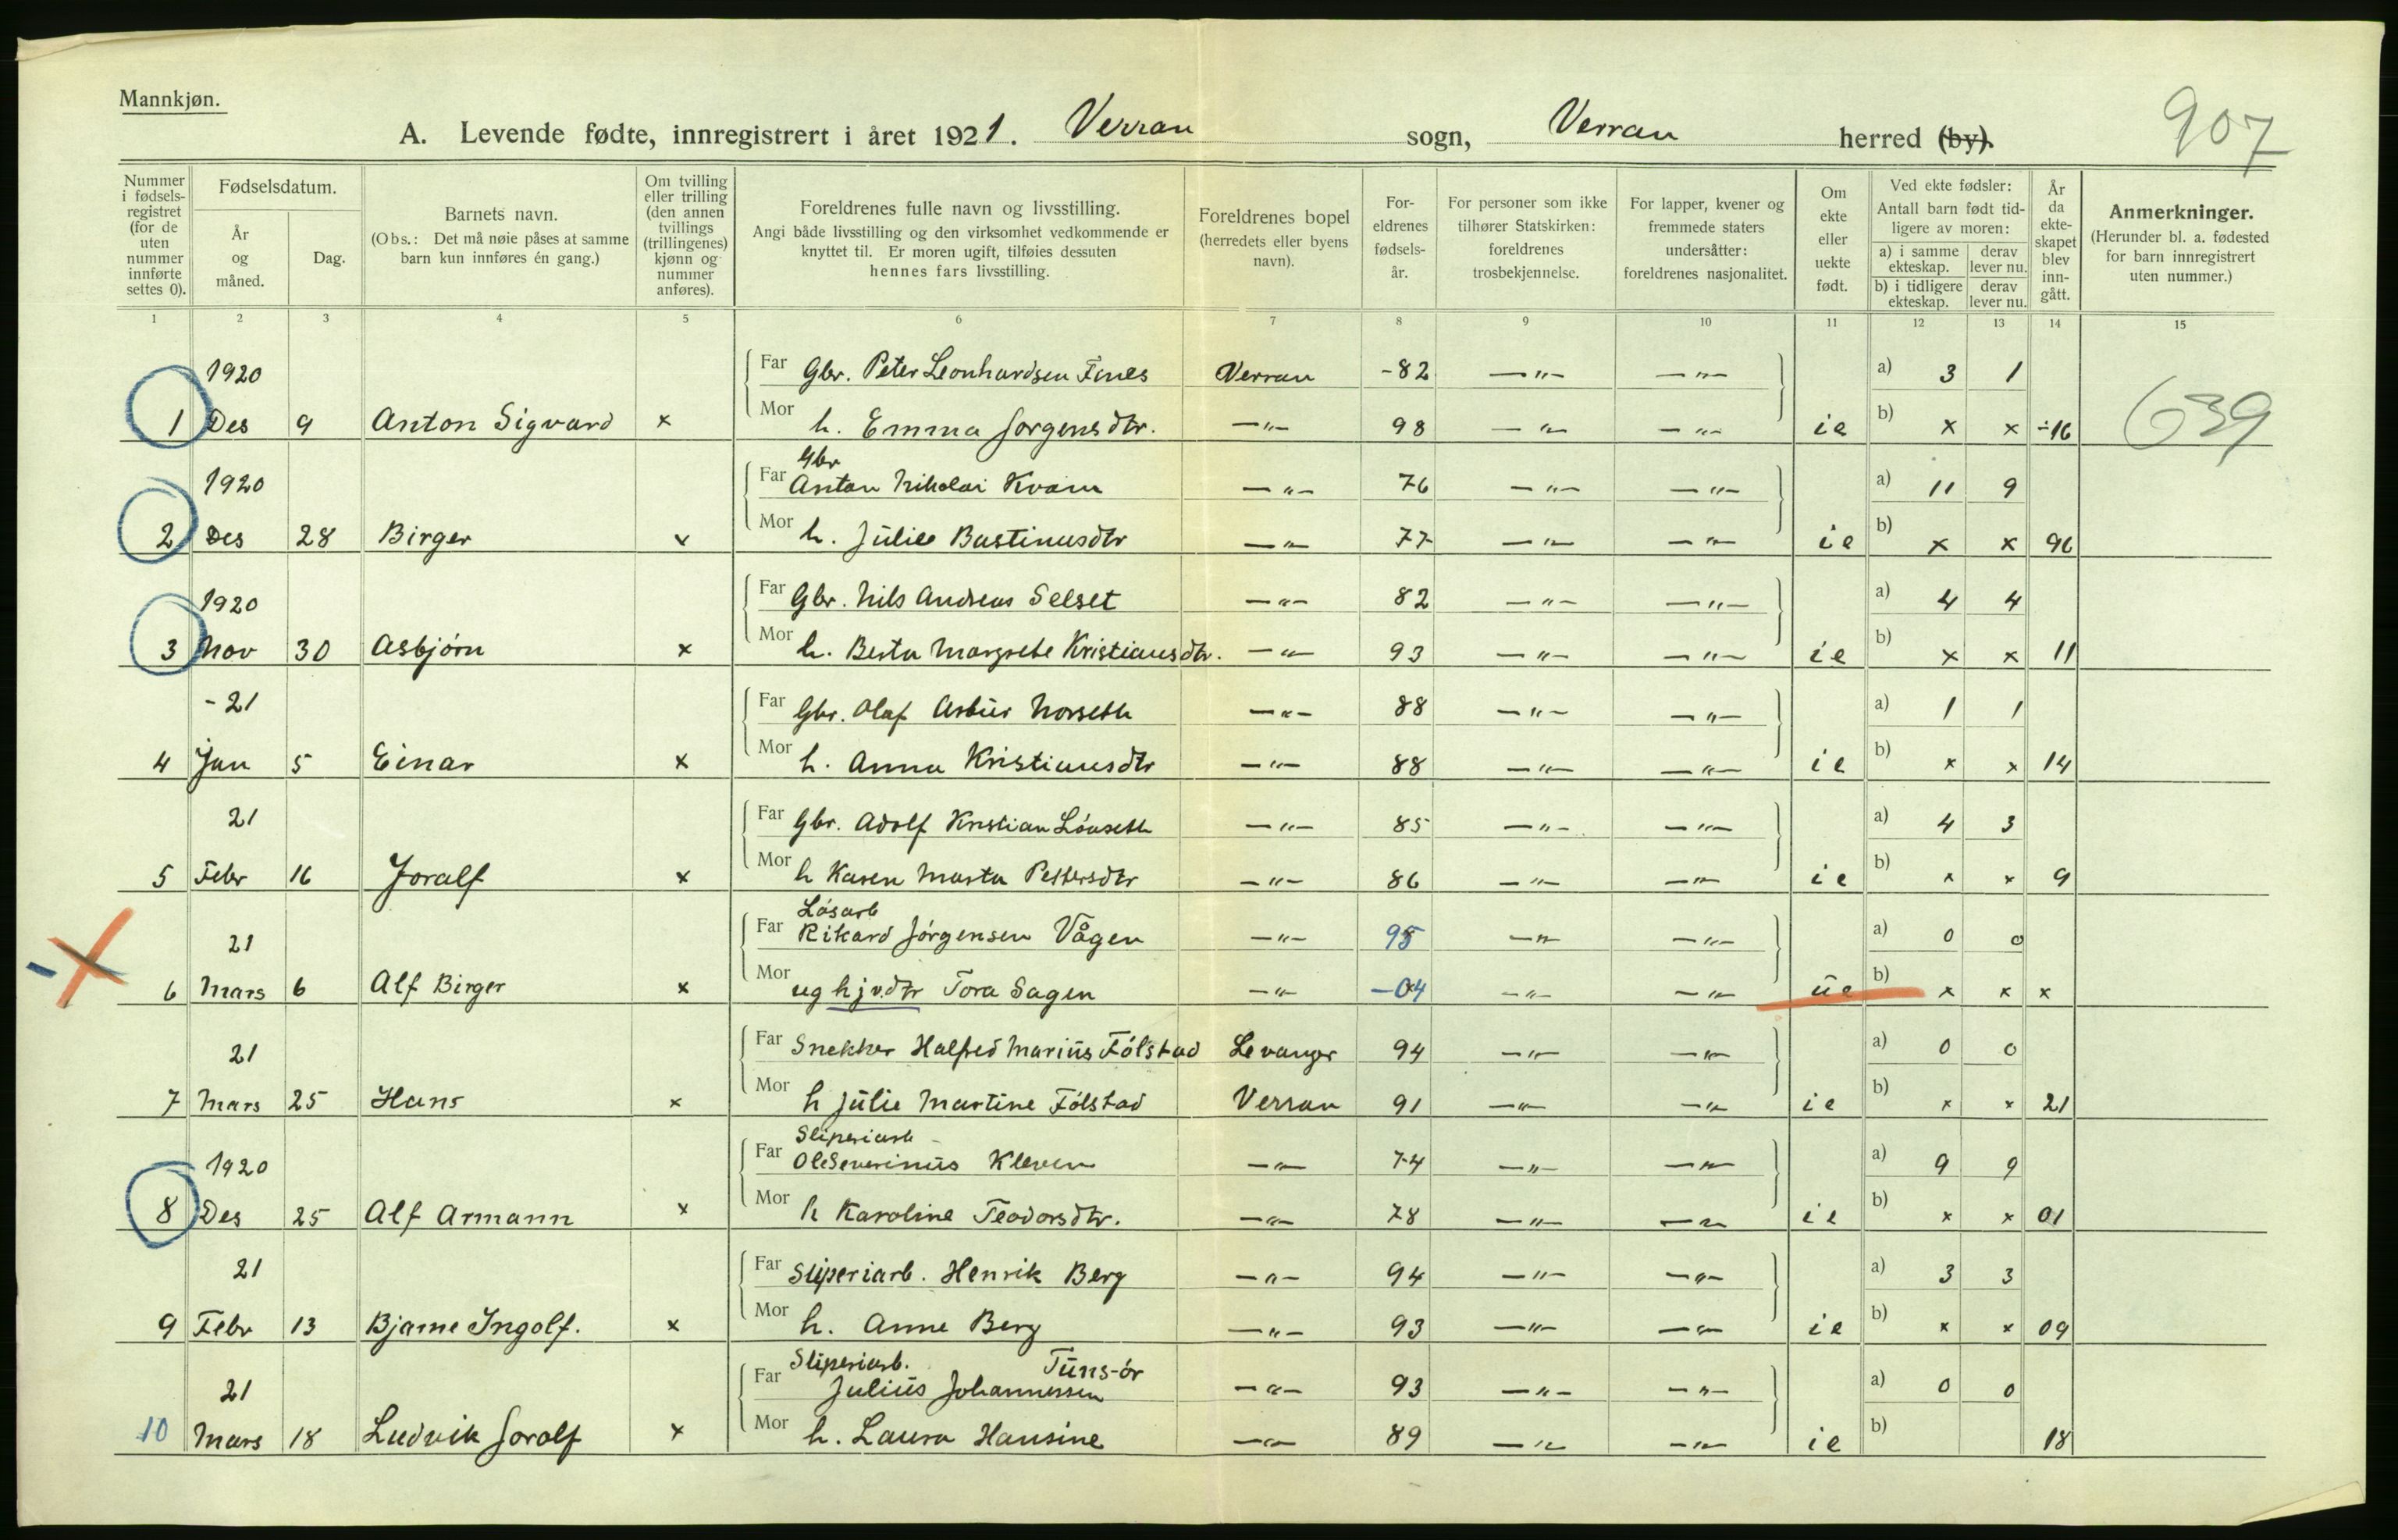 Mannkjøn.
907
A. Levende fødte, innregistrert i året 1921. Verran sogn, Verran herred (by).
Nummer i fødsels-registret (for de uten nummer innførte settes 0).
Fødselsdatum.
År og måned.
Dag.
Barnets navn.
(Obs.: Det må nøie påses at samme barn kun innføres én gang.)
Om tvilling eller trilling (den annen tvillings (trillingenes) kjønn og nummer anføres).
Foreldrenes fulle navn og livsstilling.
Angi både livsstilling og den virksomhet vedkommende er knyttet til. Er moren ugift, tilføies dessuten hennes fars livsstilling.
Foreldrenes bopel (herredets eller byens navn).
For-eldrenes fødsels-år.
For personer som ikke tilhører Statskirken: foreldrenes trosbekjennelse.
For lapper, kvener og fremmede staters undersåtter: foreldrenes nasjonalitet.
Om ekte eller uekte født.
Ved ekte fødsler: Antall barn født tid-ligere av moren:
a) i samme ekteskap. derav lever nu.
b) i tidligere ekteskap. derav lever nu.
År da ekte-skapet blev inn-gått.
Anmerkninger.
(Herunder bl. a. fødested for barn innregistrert uten nummer.)
1 2 3 4 5 6 7 8 9 10 11 12 13 14 15
1920 Far Gbr. Peter Leonhardsen Fines Verran -82 —"— —"— a) 3 1
1 Des 9 Anton Sigvard x Mor h. Emma Jørgensdtr. —"— 98 —"— —"— ie b) x x ÷16 639
Gbr
1920 Far Anton Nikolai Kvam —"— 76 —"— —"— a) 11 9
2 Des 28 Birger x Mor h. Julie Bastinusdtr —"— 77 —"— —"— ie b) x x 96
1920 Far Gbr. Nils Andreas Selset —"— 82 —"— —"— a) 4 4
3 Nov 30 Asbjørn x Mor h. Berta Margrete Kristiansdtr. —"— 93 —"— —"— ie b) x x 11
-21 Far Gbr. Olaf Artur Norseth —"— 88 —"— —"— a) 1 1
4 Jan 5 Einar x Mor h. Anna Kristiansdtr —"— 88 —"— —"— ie b) x x 14
21 Far Gbr. Adolf Kristian Lønseth —"— 85 —"— —"— a) 4 3
5 Febr 16 Joralf x Mor h Karen Marta Pettersdtr —"— 86 —"— —"— ie b) x x 9
Løsarb
21 Far Rikard Jørgensen Vågen —"— 95 —"— —"— a) 0 0
6 Mars 6 Alf Birger x Mor ug hjv.dtr Tora Sagen —"— -04 —"— —"— ue b) x x x
21 Far Snekker Halfred Marius Følstad Levanger 94 —"— —"— a) 0 0
7 Mars 25 Hans x Mor h Julie Martine Følstad Verran 91 —"— —"— ie b) x x 21
Sliperiarb
1920 Far Ole Severinus Kleven —"— 74 —"— —"— a) 9 9
8 Des 25 Alf Armann x Mor h Karoline Teodorsdtr. —"— 78 —"— —"— ie b) x x 01
21 Far Sliperiarb. Henrik Berg —"— 94 —"— —"— a) 3 3
9 Febr 13 Bjarne Ingolf. x Mor h. Anne Berg —"— 93 —"— —"— ie b) x x 09
Sliperiarb. Tuns-ør
21 Far Julius Johannessen —"— 93 —"— —"— a) 0 0
10 Mars 18 Ludvik Joralf x Mor h. Laura Hansine —"— 89 —"— —"— ie b) 18